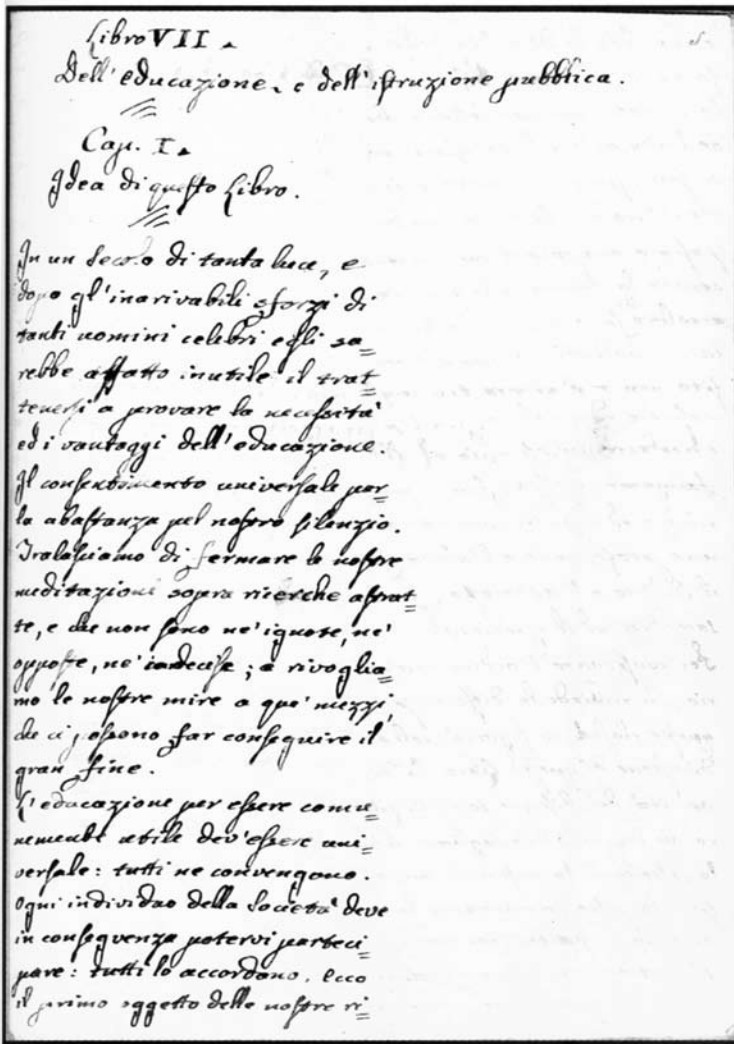 Libro VII.
Dell'educazione, e dell'istruzione pubblica.
Cap. I.
Idea di questo Libro.
In un Secolo di tanta luce, e
dopo gl'inarivabili sforzi di
tanti uomini celebri egli sa=
rebbe affatto inutile il trat=
tenersi a provare la necessità
ed i vantaggi dell'educazione.
Il consentimento universale par=
la abastanza pel nostro silenzio.
Tralasciamo di fermare le nostre
meditazioni sopra ricerche astrat=
te, e che non sono ne' ignote, ne'
opposte, ne' indecise; e rivoglia=
mo le nostre mire a que' mezzi
che ci possono far conseguire il
gran fine.
L'educazione per essere comu=
nemente utile dev'essere uni=
versale: tutti ne convengono.
Ogni individuo della Società deve
in conseguenza potervi parteci=
pare: tutti lo accordano. Ecco
il primo oggetto delle nostre ri=